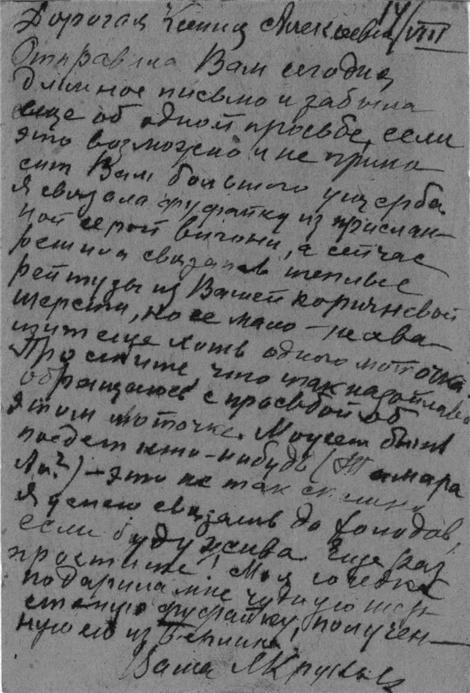 14/VIII
Дорогая Ксения Алексеевна
Отправила Вам сегодня
длинное письмо и забыла
еще об одной просьбе, если
это возможно и не прине
сит Вам большого ущерба.
Я связала фуфайку из прислан-
ной серой вигони, а сейчас
решила связать теплые
рейтузы из Вашей коричневой
шерсти, но ее мало – не хва-
тит еще хоть одного моточка.
Простите что так назойливо
обращаюсь с просьбой об
этом моточке. Может быть
поедет кто-нибудь (Тамара
Ал?) – это не так спешно
Я успею связать до холодов,
если буду жива. Еще раз
простите! Моя соседка
подарила мне чудную шер
стяную фуфайку, получен-
ную из Берлина
Ваша